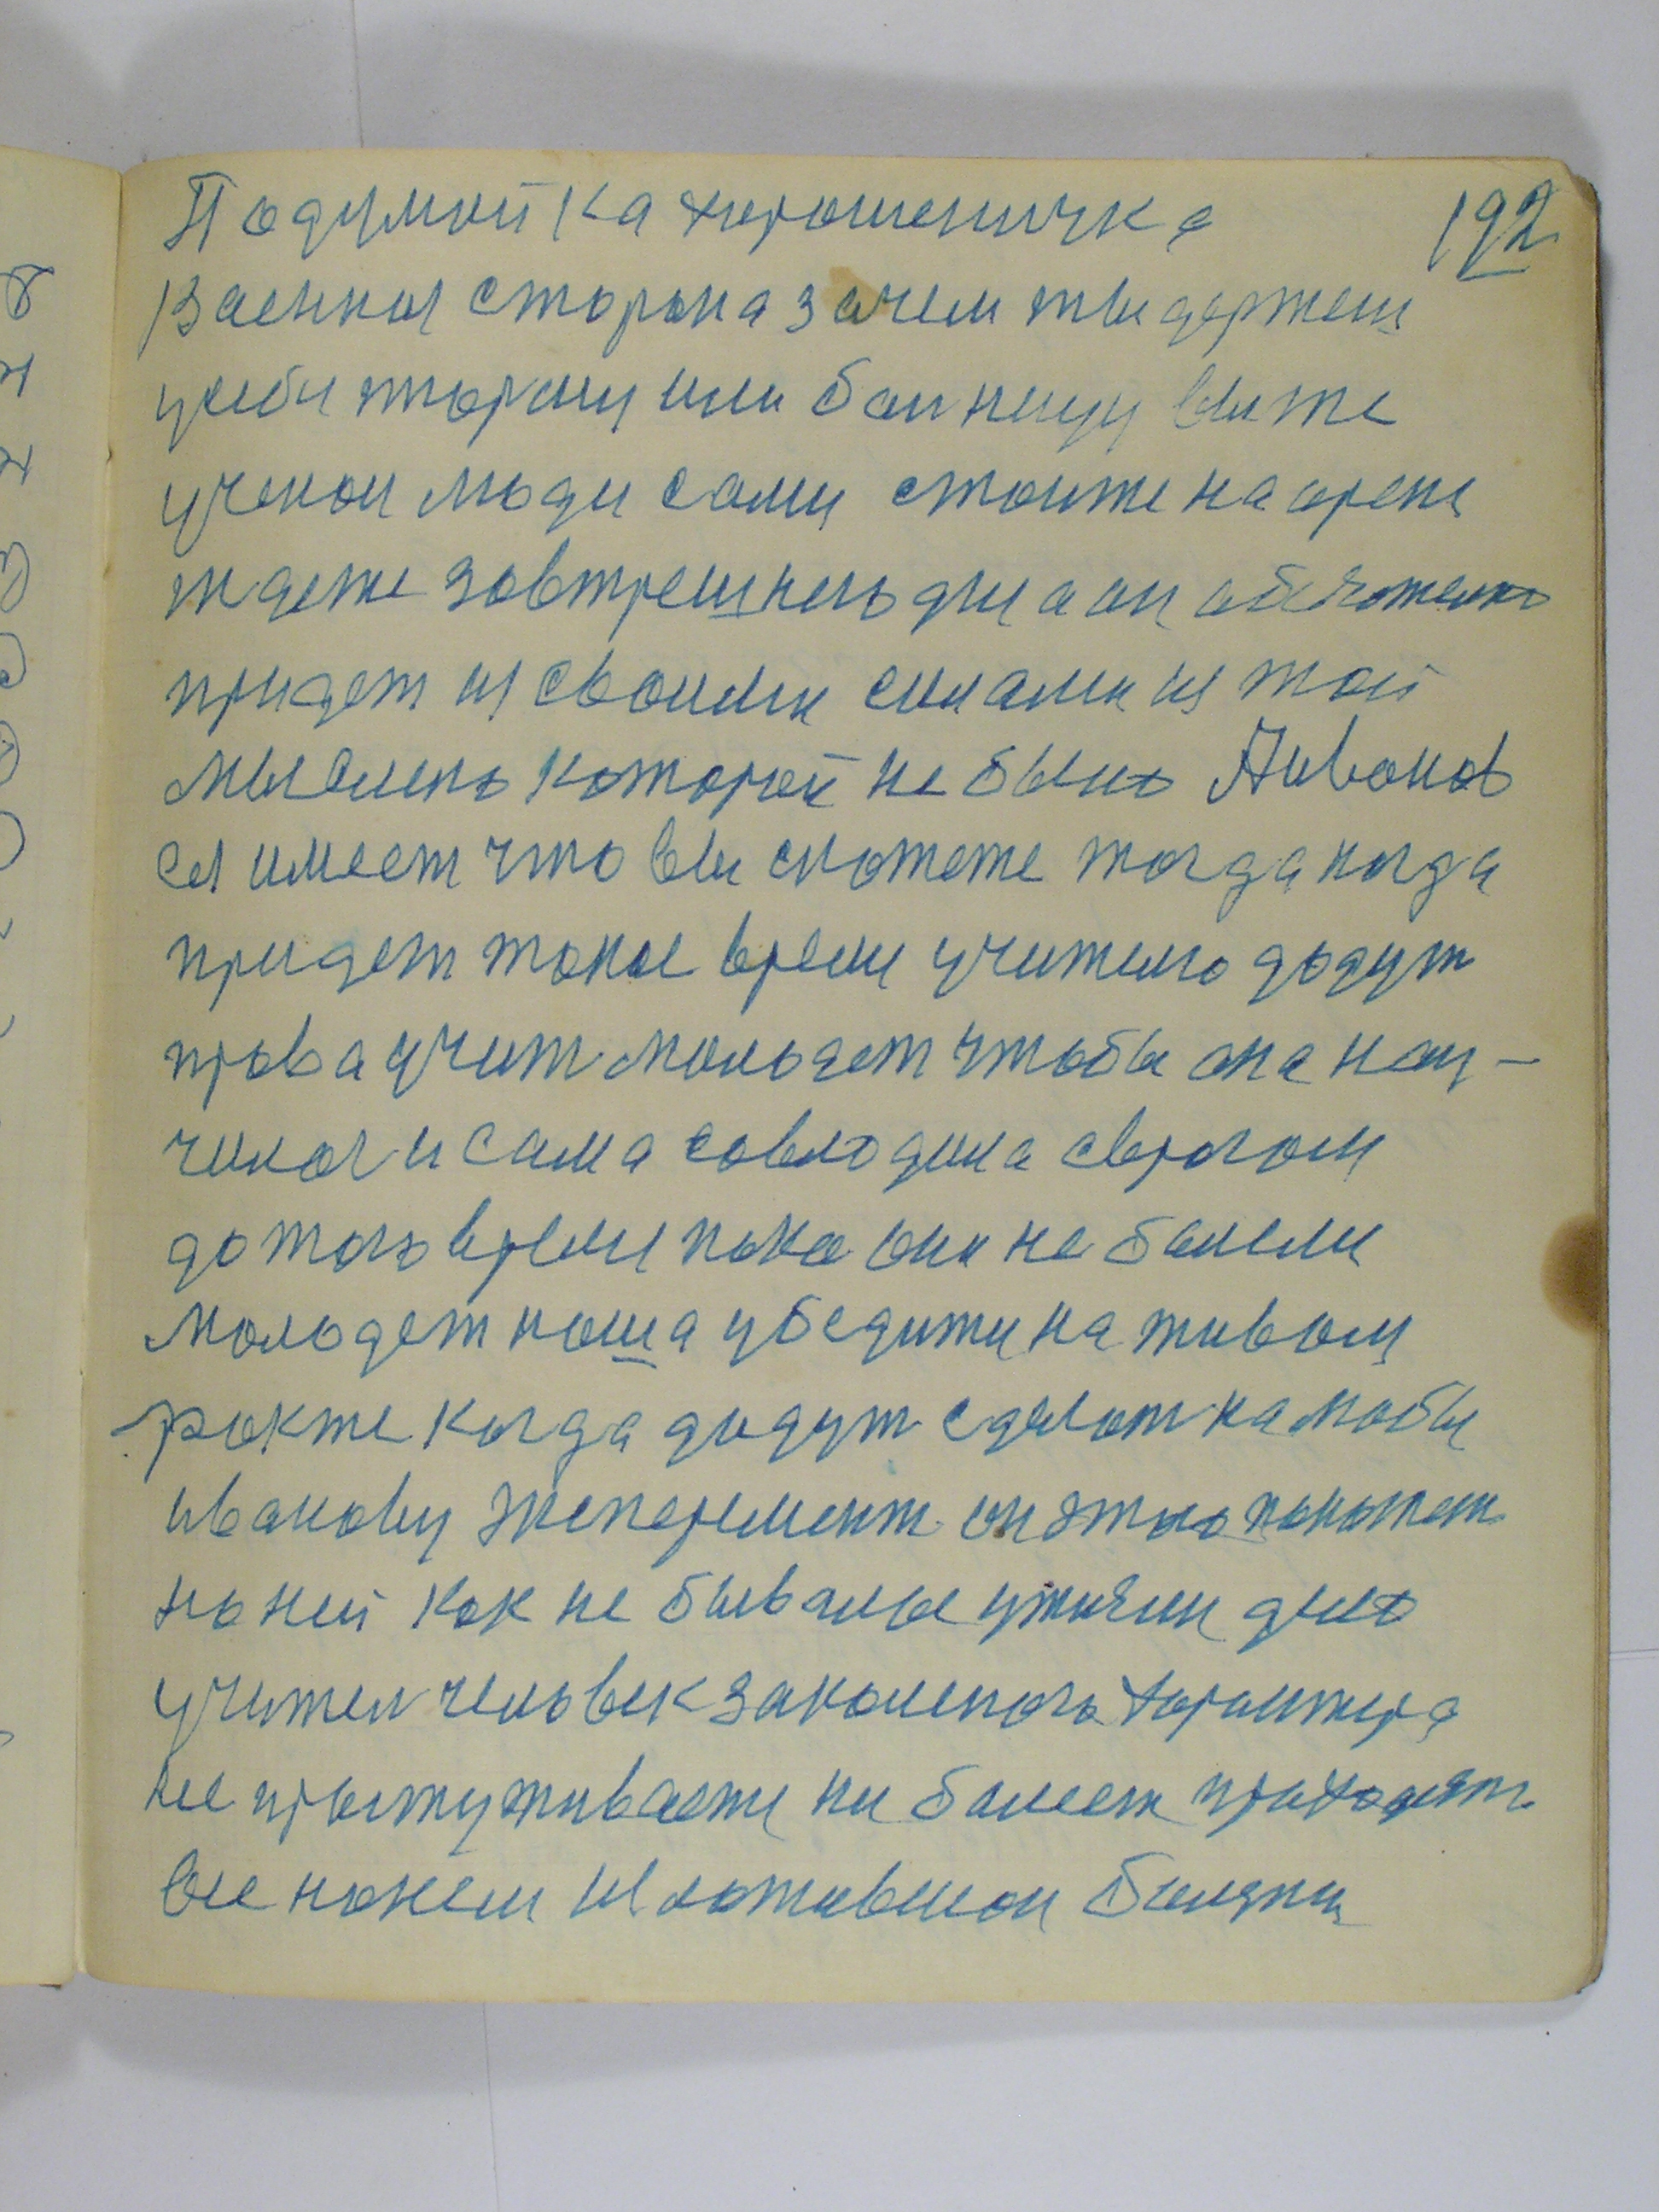 Подумой ка хорошеничка 192
Ваенная сторона зачем ты держеш
усебя тюрму или бальницу вы же
ученои люди сами стоите на очереди
ждете завтрешнего дня а он обезательно
придет из своими силами из тои
мыслию которой не было А Иванов
ея имеет что вы скажете тогда когда
придет такое время учителю дадут
права учит молодеж чтобы она нау-
чилас и сама совлодила сврагом
до того время пока они не балели
Молодеж наша убедитца на живом
факте когда дадут сделат на мобы
иванову эксперемент он этого покажет
на ней как не бывалые ужизни дело
учител человек закаленого характера
не простуживается ни балеет приходят
все к нему изложившои балячки